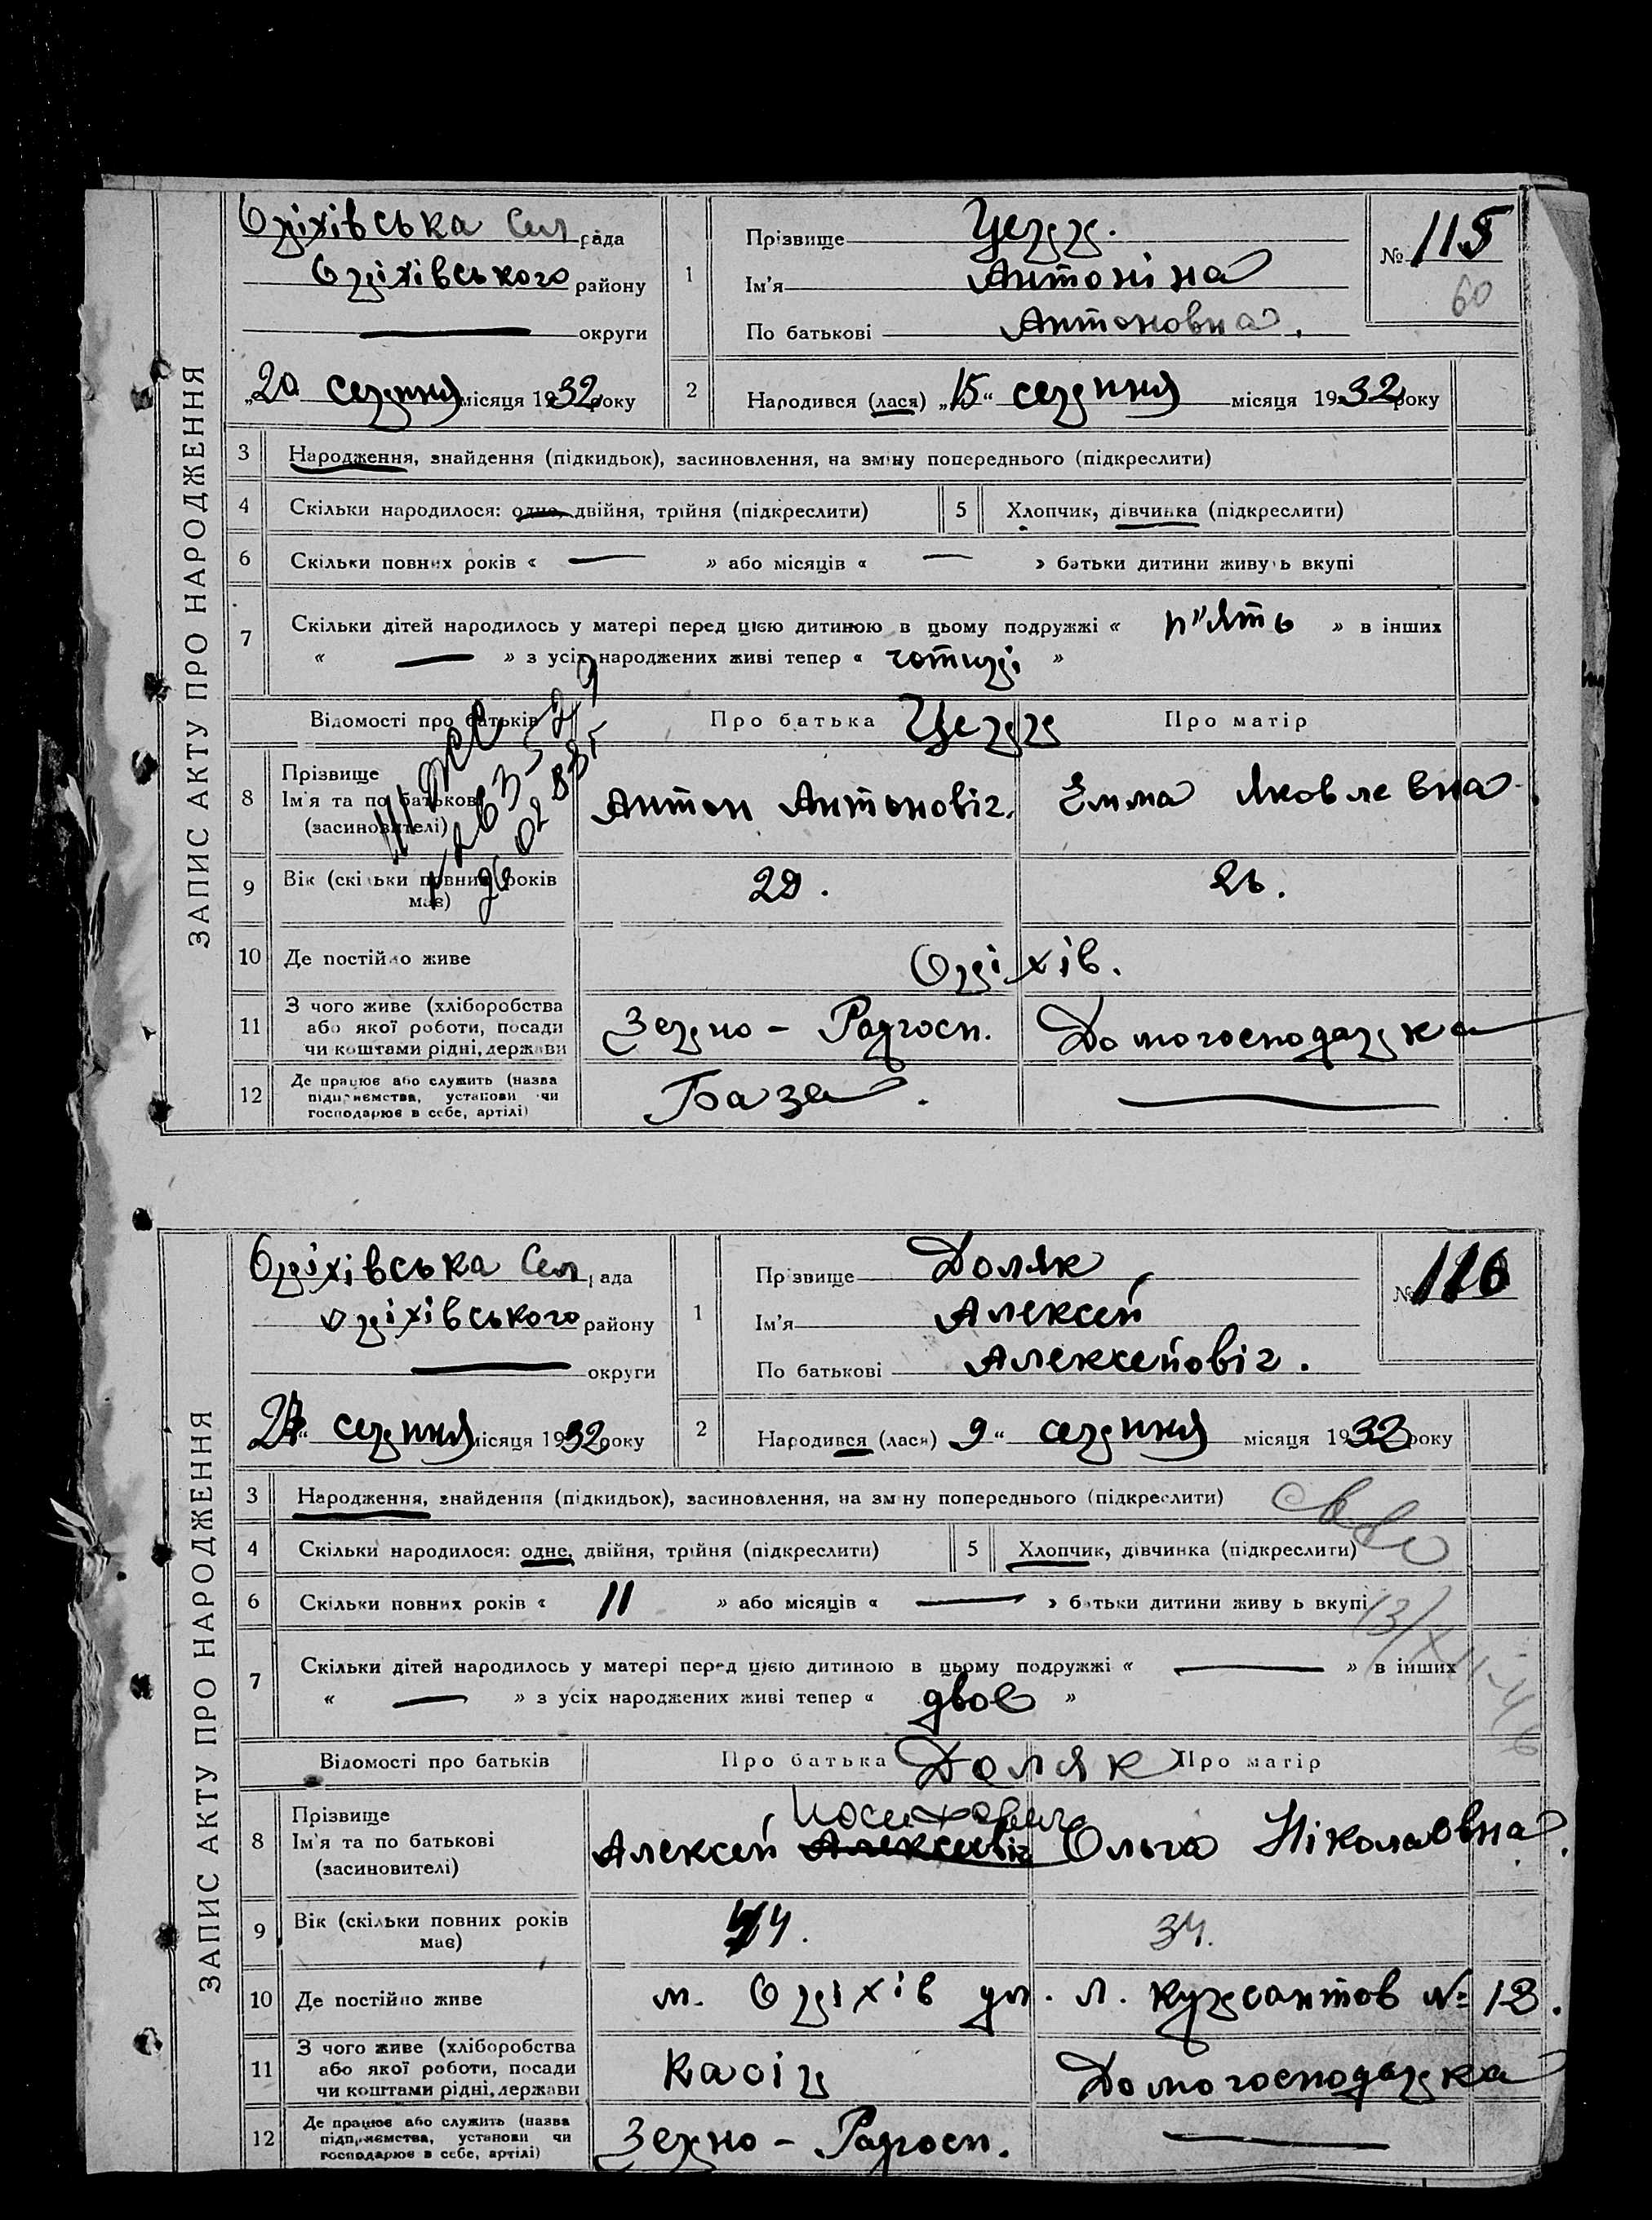 ЗАПИС АКТУ ПРО НАРОДЖЕННЯ
Оріхівська Сел рада
Оріхівського району
округи
„20 серпня місяця 1932 року
1 Прізвище Церр.
Ім'я Антоніна
По батькові Антоновна.
№ 115
60
2 Народився (лася) „15“ серпня місяця 1932 року
3 Народження, знайдення (підкидьок), засиновлення, на зміну попереднього (підкреслити)
4 Скільки народилося: одно, двійня, трійня (підкреслити)
5 Хлопчик, дівчинка (підкреслити)
6 Скільки повних років « — » або місяців « — » батьки дитини живуть вкупі
7 Скільки дітей народилось у матері перед цією дитиною в цьому подружжі « п"ять » в інших
« — » з усіх народжених живі тепер « чотирі »
Відомості про батьків Про батька Церр Про матір
8 Прізвище
Ім'я та по батькові
(засиновителі)
Антон Антоновіч. Емма Яковлевна.
9 Вік (скільки повних років має) 29. 26.
10 Де постійно живе Оріхів.
11 З чого живе (хліборобства
або якої роботи, посади
чи коштами рідні, держави
Зерно - Радгосп. Домогосподарка
12 Де працює або служить (назва
підприємства, установи чи
господарює в себе, артілі)
База. —
ЗАПИС АКТУ ПРО НАРОДЖЕННЯ
Оріхівська Сел рада
Оріхівського району
округи
21“ серпня місяця 1932 року
1 Прізвище Доляк
Ім'я Алексей
По батькові Алексейовіч.
№ 116
2 Народився (лася) 9“ серпня місяця 1932 року
3 Народження, знайдення (підкидьок), засиновлення, на зміну попереднього (підкреслити)
4 Скільки народилося: одне, двійня, трійня (підкреслити)
5 Хлопчик, дівчинка (підкреслити)
6 Скільки повних років « 11 » або місяців « — » батьки дитини живуть вкупі
13/XII-46
7 Скільки дітей народилось у матері перед цією дитиною в цьому подружжі « — » в інших
« — » з усіх народжених живі тепер « двоє »
Відомості про батьків Про батька Доляк Про матір
8 Прізвище
Ім'я та по батькові
(засиновителі)
Иосифович
Алексей Алексеевіч Ольга Ніколаовна.
9 Вік (скільки повних років має) 44. 34.
10 Де постійно живе м. Оріхів ул. Л. Курсантов № 13.
11 З чого живе (хліборобства
або якої роботи, посади
чи коштами рідні, держави
Касір Домогосподарка
12 Де працює або служить (назва
підприємства, установи чи
господарює в себе, артілі)
Зерно - Радгосп. —